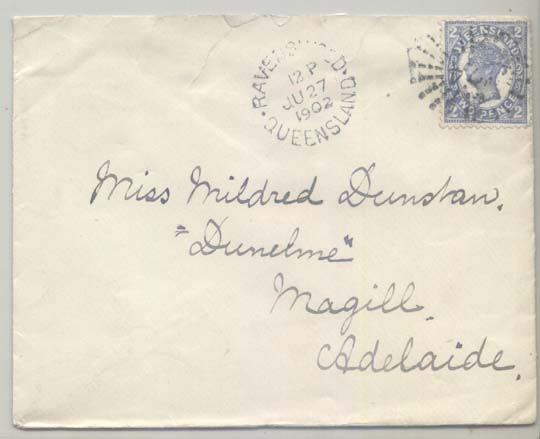 RAVENSWOOD
12 P
JU 27
1902
QUEENSLAND
2 QUEENSLAND 2
2 TWO PENCE 2
Miss Mildred Dunstan.
"Dunelme"
Magill.
Adelaide.